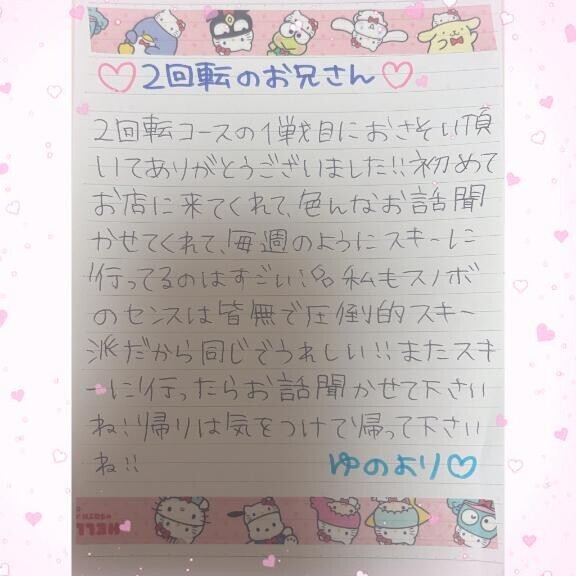 ♡2回転のお兄さん♡
2回転コースの1戦目におさそい頂
いてありがとうございました!!初めて
お店に来てくれて、色んなお話聞
かせてくれて、毎週のようにスキーに
行ってるのはすごい!!私もスノボ
のセンスは皆無で圧倒的スキー
派だから同じでうれしい!!またスキ
ーに行ったらお話聞かせて下さい
ね!!帰りは気をつけて帰って下さい
ね!!
ゆのより♡
HELL